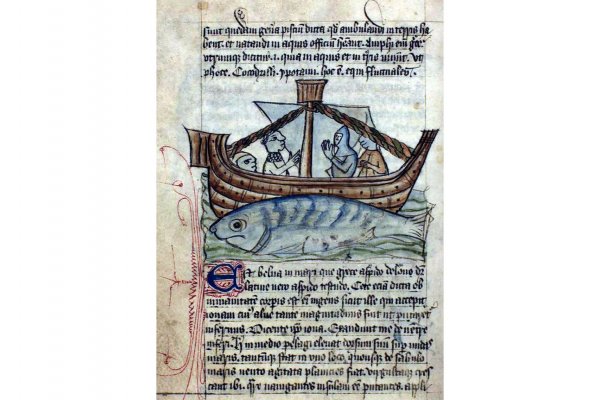 sunt quedam gena pisciu dicta qd ambulandi in terris ha
bent. et natandi in aquis officiu heant. Amphi em grece
utrumque dicitur .i. quia in aquis et in tris uiuunt. Vt
phoce. Cocodrilli. ypotami. hoc e. equi fluctuales.
Est belua in mari que grece aspido delone dr
latine uero aspido testudo. Cete eciam dicta ob
immanitatem corpis est em ingens sicut ille qui excepit
ionam cui' aluus tante magnitudinis fuit ut putaret
infernus. Dicente ipo iona. Exaudiuit me de uentre
inferi. in medio pelagi eleuat dorsum suu sup undas
maris. tantumq stat in uno loco, quousq de sabulo
maris uento agitata planicies fiat. cres
cant ibi. nauigantes insulam ee putantes. appli